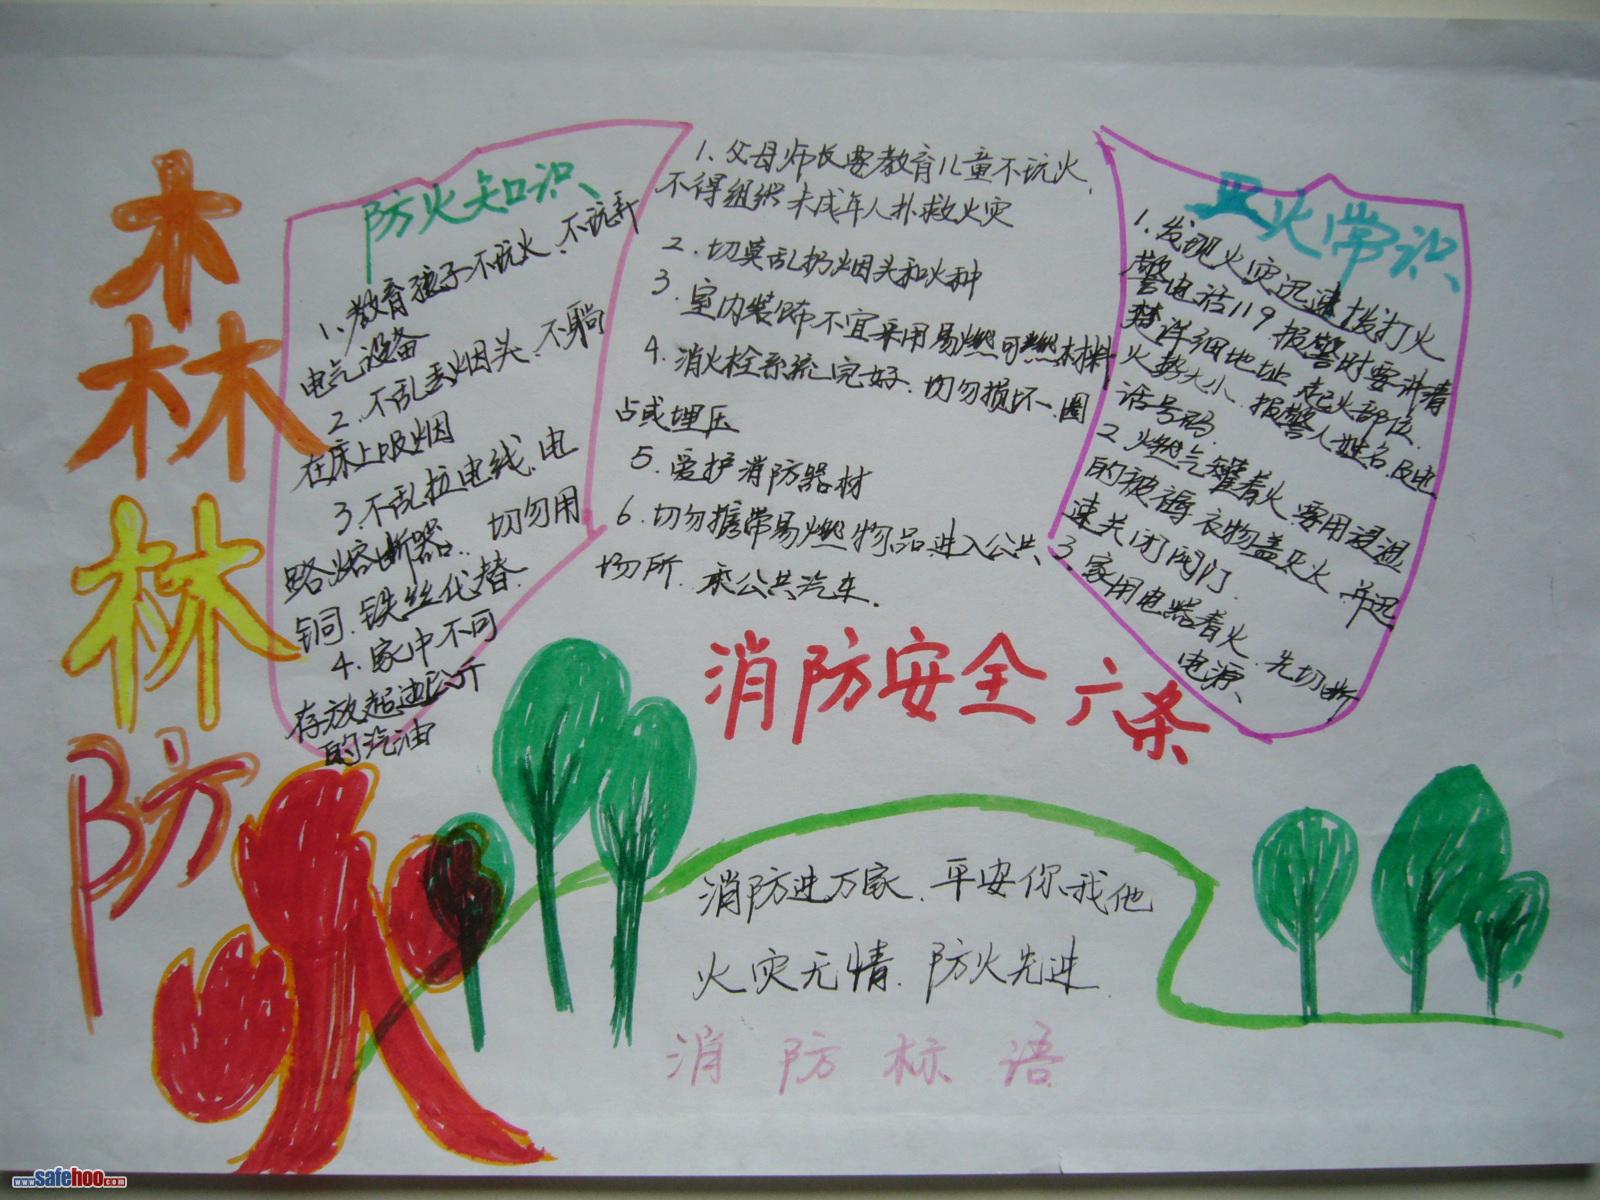 森
林
防
火
防火知识
1、教育孩子不玩火、不玩弄
电气设备
2、不乱丢烟头、不躺
在床上吸烟
3、不乱拉电线、电
路熔断器、切勿用
铜、铁丝代替、
4、家中不可
存放超过公斤
的汽油
1、父母师长要教育儿童不玩火、
不得组织未成年人扑救火灾
2、切莫乱扔烟头和火种
3、室内装饰不宜采用易燃可燃材料
4、消火栓系统完好、切勿损坏、圈
占或埋压
5、爱护消防器材
6、切勿携带易燃物品进入公共
场所、乘公共汽车、
消防安全六条
火常识
1、发现火灾迅速拨打火
警电话119 报警时要讲清
楚详细地址 起火部位、
火势大小、报警人姓名及电
话号码、
2、燃气罐着火 要用浸湿
的被褥 衣物盖灭火 并迅
速关闭阀门、
3、家用电器着火、先切断
电源、
消防进万家、平安你我他
火灾无情、防火先进
消防标语
www.safehoo.com